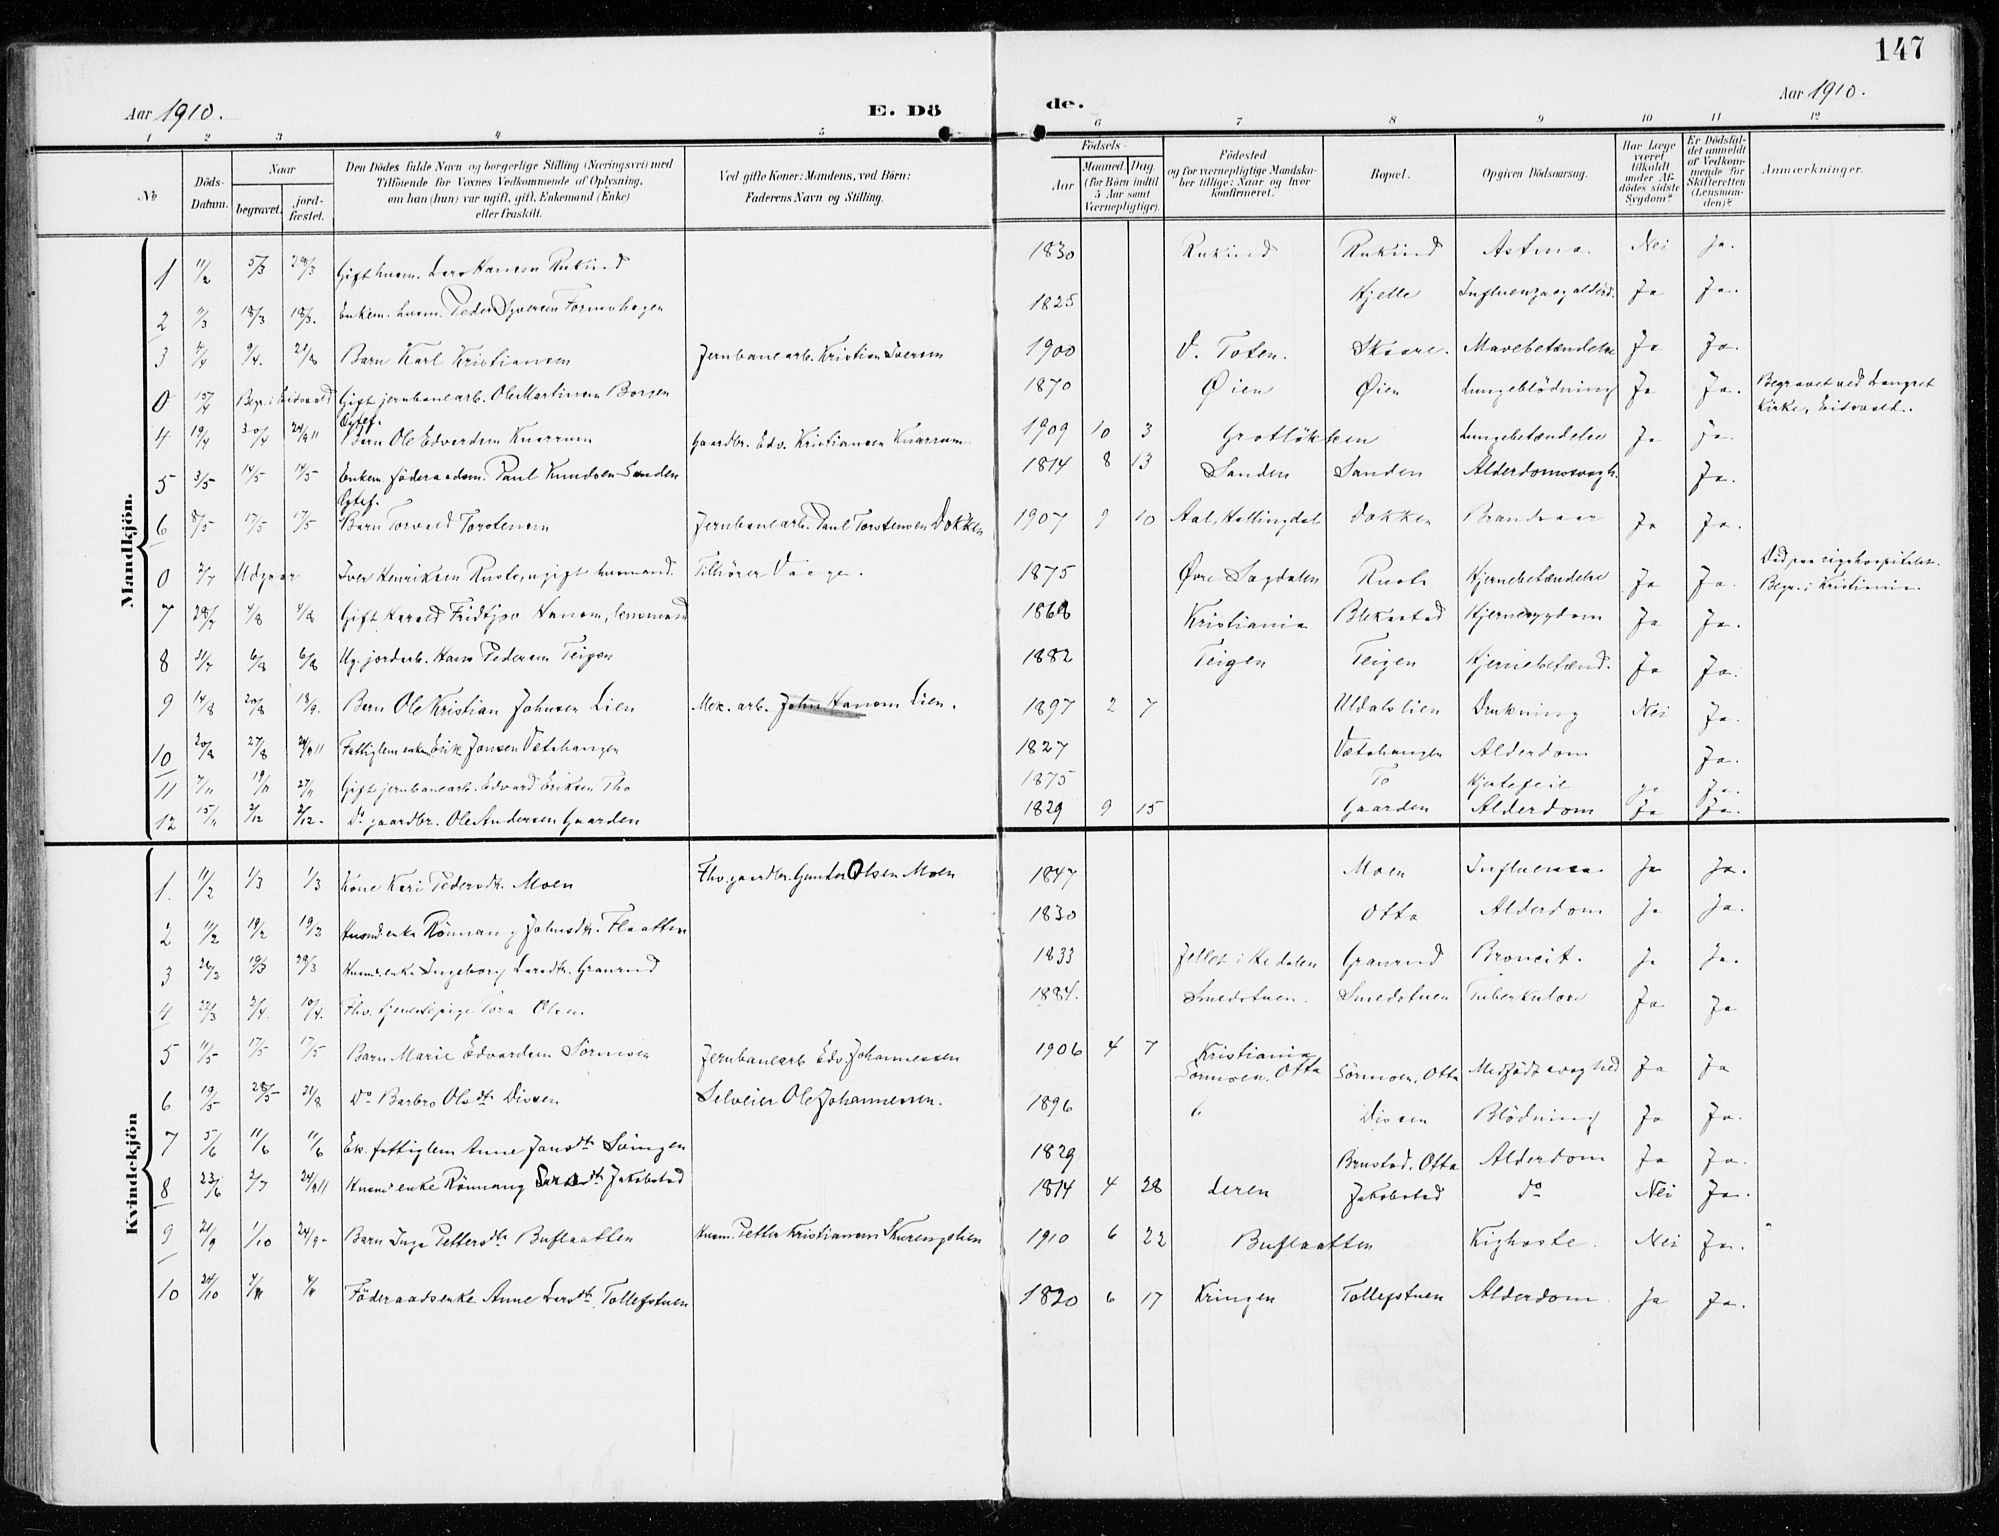 147
Aar 1910.
E. Dö
de.
Aar 1910.
1 2 3 4 5 6 7 8 9 10 11 12
No
Döds-Datum.
Naar
begravet.
jord-fæstet.
Den Dödes fulde Navn og borgerlige Stilling (Næringsvei) med
Tilföiende for Voxnes Vedkommende af Oplysning,
om han (hun) var ugift, gift, Enkemand (Enke)
eller fraskilt.
Ved gifte Koner: Mandens, ved Börn:
Faderens Navn og Stilling.
Födsels-
Aar
Maaned. Dag.
(for Börn indtil
5 Aar samt
Værnepligtige).
Födested
og for værnepligtige Mandska-
ber tillige: Naar og hvor
konfirmeret.
Bopæl.
Opgiven Dödsaarsag.
Har Læge
været
tilkaldt
under Af-
dödes sidste
Sygdom?
Er Dödsfal-
det anmeldt
af Vedkom-
mende for
Skifteretten
(Lensman-
den)?
Anmærkninger.
Mandkjön.
1 11/2 5/3 28/3 Gift husm. Lars Hansen Rukind 1830 Rukind Rukind Astma. Nei Ja.
2 7/3 18/3 18/3. Enkem. husm. Peder Syversen Formohagen 1825 Kjelle Influenza og alderd. Ja Ja.
3 9/4. Barn Karl Kristiansen Jernbanearb. Kristian Iversen 1900 V. Toten. Skaare. Mavebetændelse Ja Ja.
0 15/4 Begr. i Eidsvold Gift jernbanearb. Ole Martinsen Borgen 1870 Øien Øien Lungeblödning Ja Ja. Begravet ved Langset
Kirke, Eidsvold.
4 19/4 30/4 24/9 11 Ægtef. Barn Ole Edvardsen Knarrum Gaardbr. Edv. Kristiansen Knarrum 1909 10 3 Grotlökken Lungebetændelse Ja Ja.
5 3/5 14/5 14/5 Enkem. föderaadsm. Paul Knudsen Sanden 1814 8 13 Sanden Sanden Alderdomssvagh. Ja.
6 8/5 17/5 17/5 Ægtef. Barn Torvald Torstensen Jernbanearb. Paul Torstensen Dokken 1907 9 10 Aal, Hallingdal Dokken Brandsaar Ja Ja.
0 2/7 Udgaar Iver Henriksen Ruste, ugift husmand. Tilhörer Vaage. 1875 Øvre Sagdalen Ruste Hjernebetændelse Ja Ja. Död paa rigshospitalet.
Begr. i Kristiania.
7 28/7 4/8 4/8 Gift Harald Fridtjov Hansen, lensmand 1868 Kristiania Blekastad Hjernesygdom Ja Ja.
8 31/7 6/8 6/8 Ug. jordarb. Hans Pedersen Teigen 1882 Teigen Teigen Hjernebetænd. Ja Ja.
9 14/8 20/8 18/9. Barn Ole Kristian Johnsen Lien Mek. arb. John Hansen Lien. 1897 2 7 Uldalslien Drukning Nei Ja.
10 20/8 27/8 24/9 11 Fattiglem enkem. Erik Jonsen Vætshaugen 1827 Vætshaugen Alderdom Ja.
11 7/11 19/11 27/11 Gift jernbanearb. Edvard Eriksen Tho 1875 To Hjertefeil Ja Ja.
12 15/11 2/12 2/12. Do gaardbr. Ole Andersen Gaarden 1829 9 15 Gaarden Alderdom Ja Ja.
Kvindekjön
1. 11/2 1/3 1/3 Kone Kari Pedersdt. Moen Fhv. gaardbr. Gunder Olsen Moen 1847 Moen Influensa Ja Ja.
2 11/2 19/2 19/2 Husmd.enke Rönnaug Johnsdt. Flaatten 1830 Otta Alderdom Ja Ja.
3 19/3 29/3 Husmd.enke Ingeborg Larsdtr. Granrud 1833 Jellet i Hedalen Granrud Broncit. Ja Ja.
4 22/3 2/4. 10/4. Fhv. tjenestepige Tora Olsen. 1884. Smedstuen. Smedstuen Tuberkulose Ja Ja
5 11/5 17/5 17/5 Barn Marie Edvardsen Sörmoen Jernbanearb Edv. Johannessen 1906 4 7 Kristiania
Sörmoen, Otta Sörmoen, Otta Medfödt svaghed Ja Ja
6 19/5 28/5 21/8 Do Barbro Olsdt Dissen Selveier Ole Johannessen. 1896 " Dissen Blödning Ja Ja.
7 5/6 11/6 11/6 Ek. fattiglem Anne Jansdt Svingen 1829 Brustad, Otta Alderdom Ja Ja.
8 23/6 2/7 24/9 11 Husmd enke Rönnaug Larsdt Jakobstad 1814 4 28 Leren Jakobstad Do Nei Ja.
9 21/9 1/10 24/9- Barn Inga Pettersdt Buflaatten Husm. Petter Kristiansen Skurengslien 1910 6 22 Buflaatten Kighoste. Nei Ja.
10 24/10 4/11 4/11 Föderaadsenke Anne Larsdt. Tollefstuen 1820 6 17 Kringen Tollefstuen Alderdom. Ja Ja.